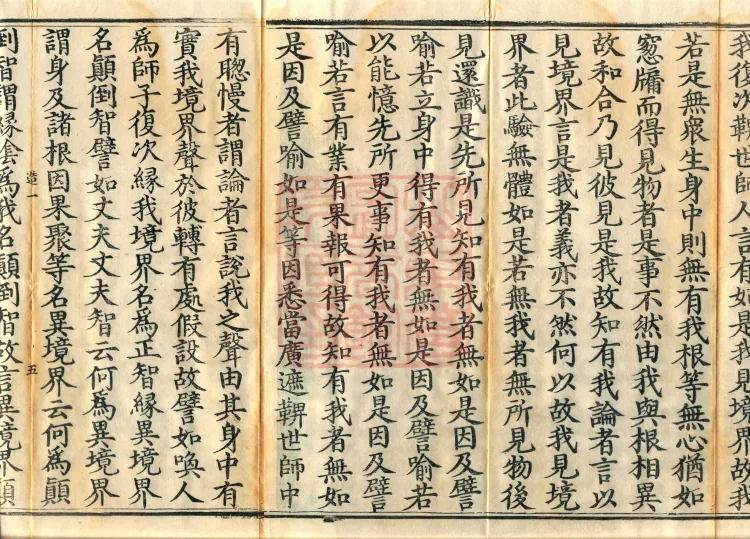 我復次鞞世師人言有如是我見境界故我
若是無衆生身中則無有我根等無心猶如
窓牖而得見物者是事不然由我與根相異
故和合乃見彼見是我故知有我論者言以
見境界言是我者義亦不然何以故我見境
界者此驗無體如是若無我者無所見物後
見還識是先所見知有我者無如是因及譬
喻若立身中得有我者無如是因及譬喻若
以能憶先所更事知有我者無如是因及譬
喻若言有業有果報可得故知有我者無如
是因及譬喻如是等因悉當廣遮鞞世師中
有聰慢者謂論者言說我之聲由其身中有
實我境界聲於彼轉有處假設故譬如喚人
爲師子復次緣我境界名爲正智緣異境界
名顛倒智譬如丈夫丈夫智云何爲異境界
謂身及諸根因果聚等名異境界云何爲顛
造一
五
倒智謂緣陰爲我名顛倒智故言異境界顛